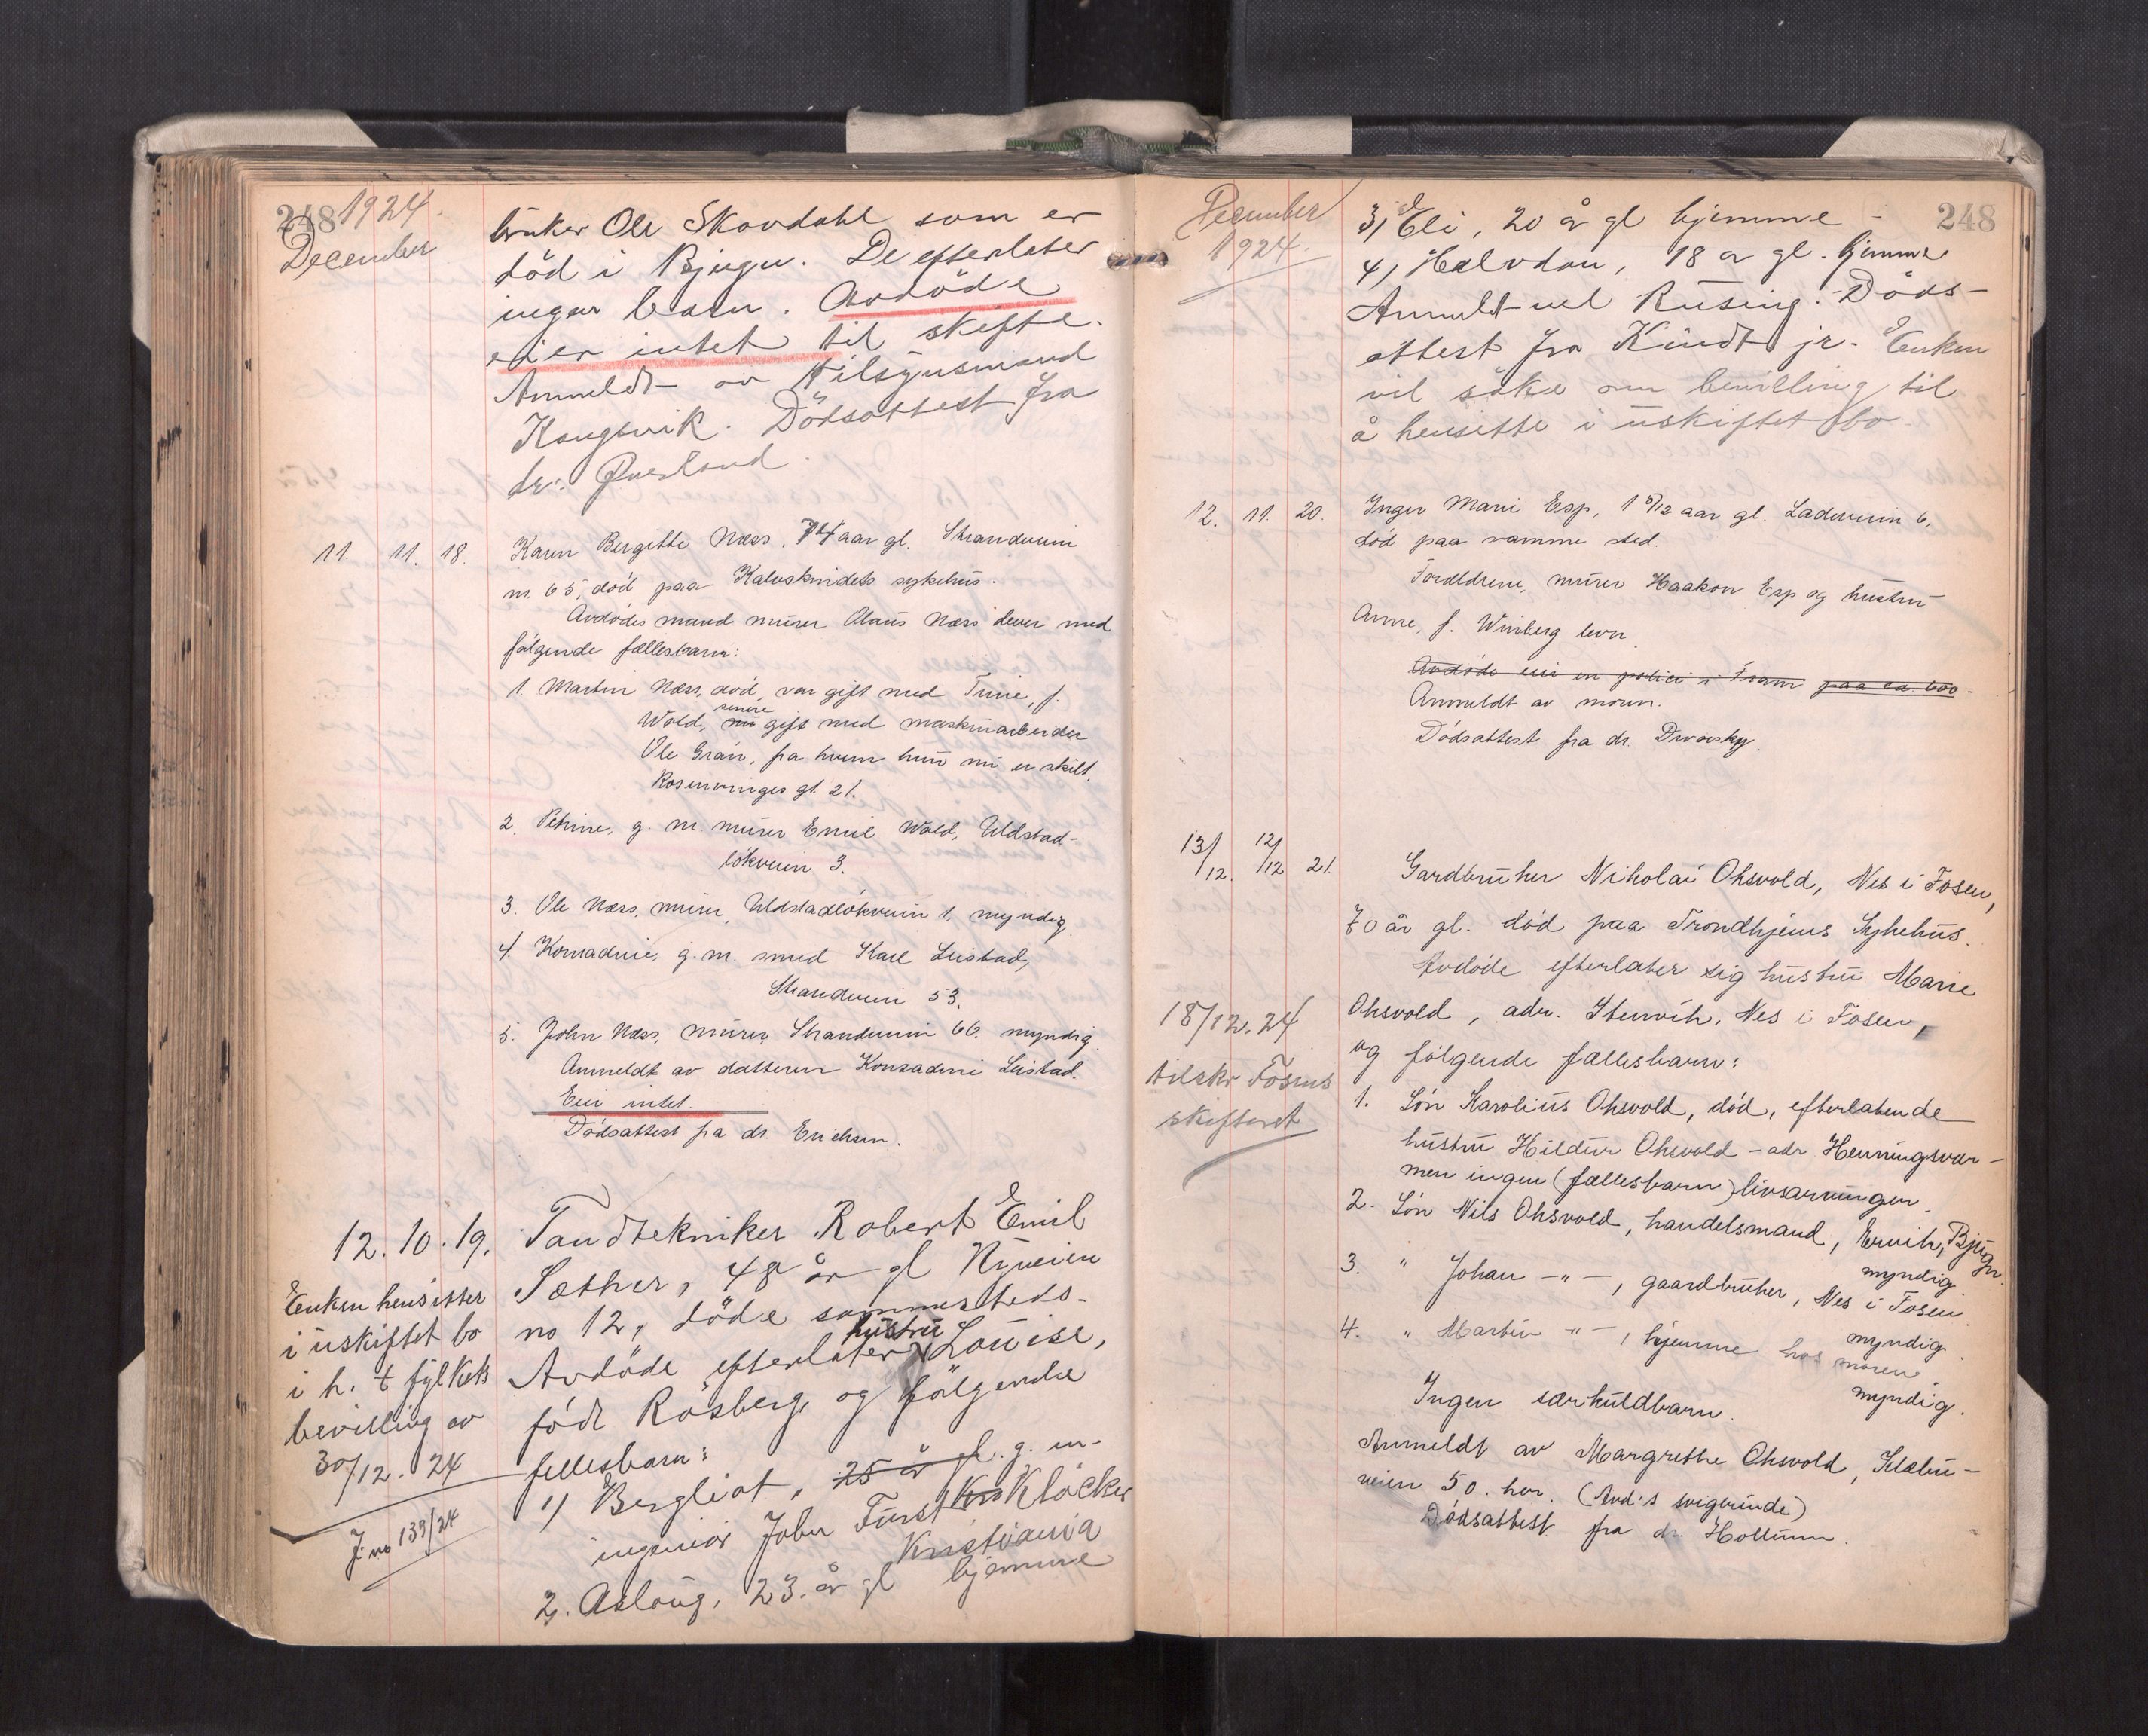 248 1924.
December
bruker Ole Skovdahl som er
död i Bjugn. De efterlater
ingen barn. Avdöde
eier intet til skifte.
Anmeldt av tilsynsmand
Kongsvik. Dödsattest fra
dr. Øverland.
11. 11. 18. Karen Bergitte Næss, 74 aar gl. Strandveien
nr. 65, död paa Kalvskindets sykehus.
Avdödes mand murer Olaus Næss lever med
fölgende fællesbarn:
1. Martin Næss, död, var gift med Trine, f.
Wold, nu senere gift med maskinarbeider
Ole Gran, fra hvem hun nu er skilt.
Rosenvinges gt. 21.
2. Petrine, g. m. murer Emil Wold, Uldstad-
lökveien 3.
3. Ole Næss, murer, Uldstadlökveien 1, myndig.
4. Konradine, g. m. smed Karl Leistad,
Strandveien 53.
5. John Næss, murer, Strandveien 66. myndig.
Anmeldt av datteren Konradine Leistad.
Eier intet.
Dödsattest fra dr. Erichsen.
12. 10. 19. Tandtekniker Robert Emil
Sæther, 48 år gl Nyveien
no 12, döde sammesteds.
Avdöde efterlater hustru Louise,
född Rösberg, og fölgende
fellesbarn:
1) Bergliot, 25 år gl. g. m.
ingeniör John Fürst Kr Klöcker
Kristiania
2. Aslaug, 23 år gl hjemme
Enken hensitter
i uskiftet bo
i h. t. fylkets
bevilling av
30/12. 24
J. no 139/24
December
1924.
248
3) Eli, 20 å gl hjemme
4) Halvdan, 18 a gl. hjemme
Anmeldt ved Rusing. Döds-
attest fra Kindt jr. Enken
vil söke om bevilling til
å hensitte i uskiftet bo.
12. 11. 20. Inger Marie Esp, 1 5/12 aar gl. Ladeveien 6,
död paa samme sted.
Foreldrene, murer Haakon Esp og hustru
Anne, f. Winberg lever
Avdöde eier en police i Fram paa ca. 600.-
Anmeldt av moren.
Dödsattest fra dr. Dworsky.
13/12. 12/12 21. Gardbruker Nikolai Oksvold, Nes i Fosen,
70 år gl. död paa Trondhjems Sykehus.
Avdöde efterlater sig hustru Marie
Oksvold, adr. Stenvik, Nes i Fosen,
og fölgende fællesbarn:
1. Sön Karolius Oksvold, död, efterlatende
hustru Hildur Oksvold - adr Henningsvær -
men ingen (fællesbarn) livsarvinger.
2. Sön Nils Oksvold, handelsmand, Ervik, Bjugn.
myndig
3. " Johan -"-, gaardbruker, Nes i Fosen
myndig.
4. " Martin -"-, hjemme hos moren.
myndig.
Ingen særkuldbarn.
Anmeldt av Margrethe Oksvold, Klæbu-
veien 50. her. (Avd's svigerinde)
Dödsattest fra dr. Hollum.
18/12. 24
tilskr Fosens
skifteret